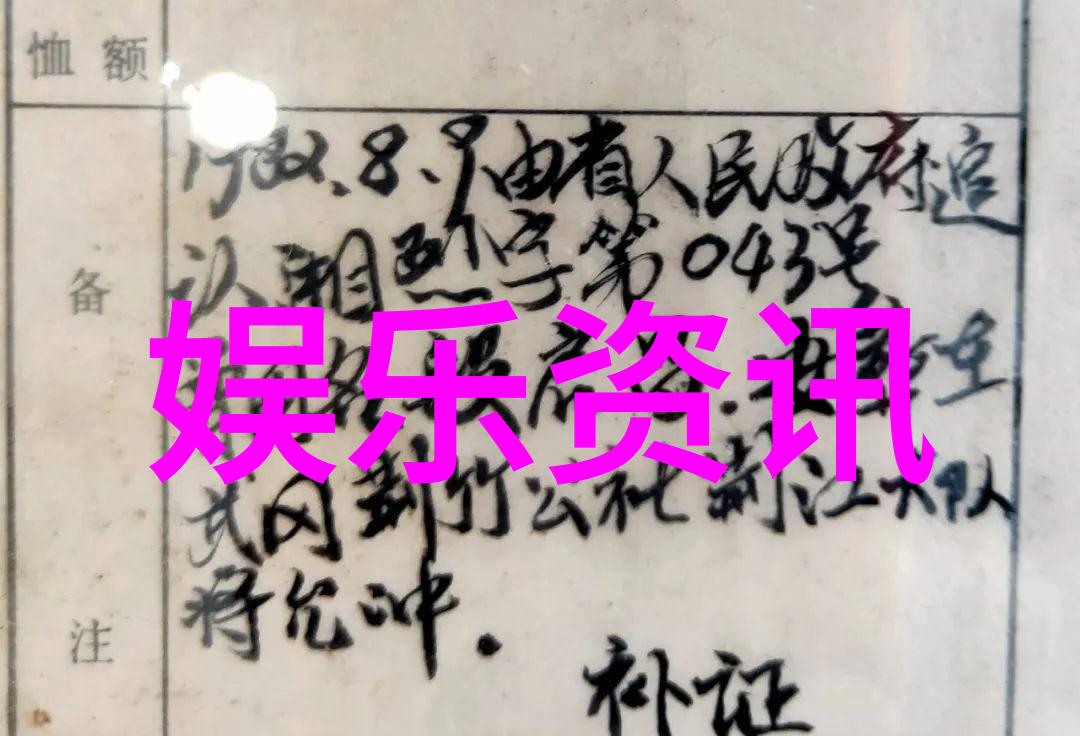 恤额
备注
1982.8.9由省人民政府追
认湘烈字第043号
娱乐资讯
武冈荆竹公社荆江大队
将允冲.
补证